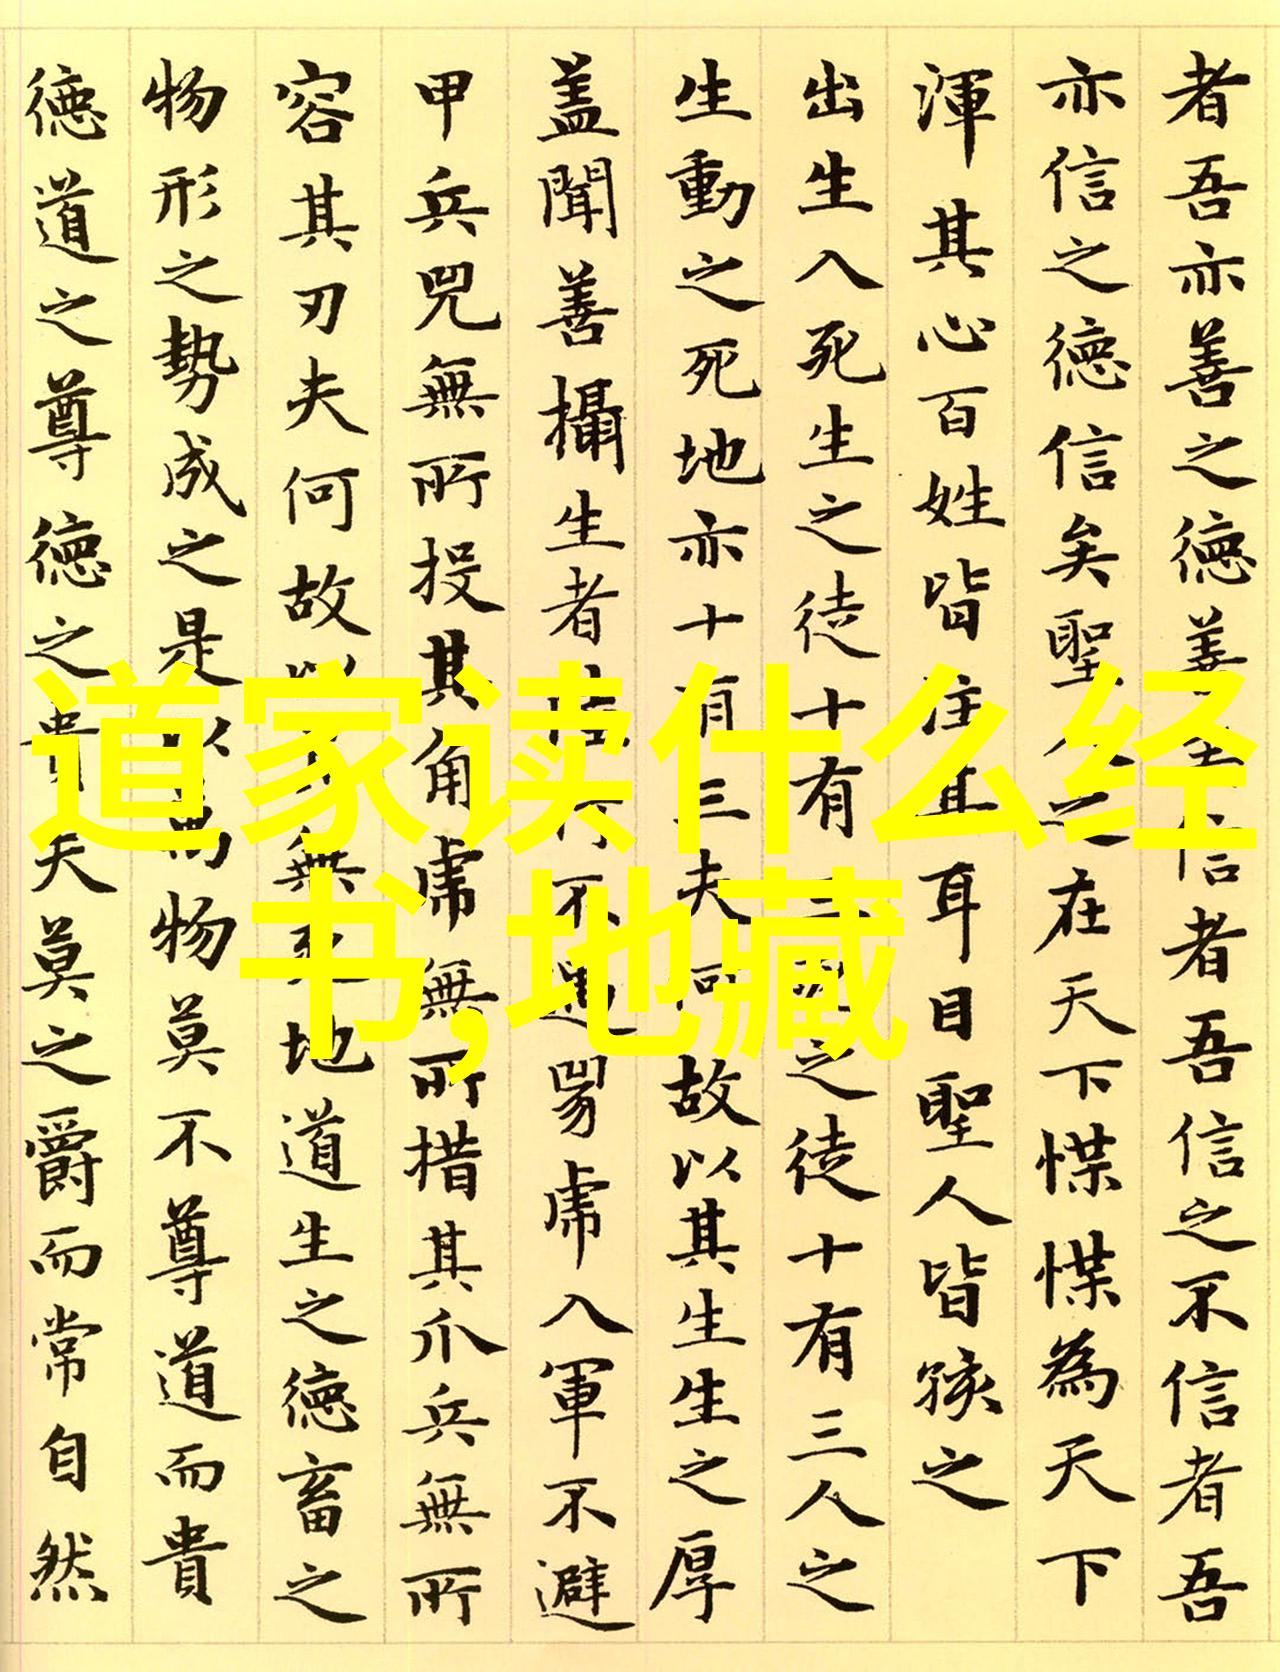 道家读什么经
书,地藏
者吾亦善之德善信者吾信之不信者吾
亦信之德信矣聖人之在天下惵惵為天下
渾其心百姓皆注其耳目聖人皆孩之
出生入死生之徒十有三死之徒十有三人之
生動之死地亦十有三夫何故以其生生之厚
蓋聞善攝生者陸行不遇兕虎入軍不避
甲兵兕無所投其角虎無所措其爪兵無所
容其刃夫何故以其無死地道生之德畜之
物形之勢成之是以萬物莫不尊道而貴
德道之尊德之貴夫莫之爵而常自然